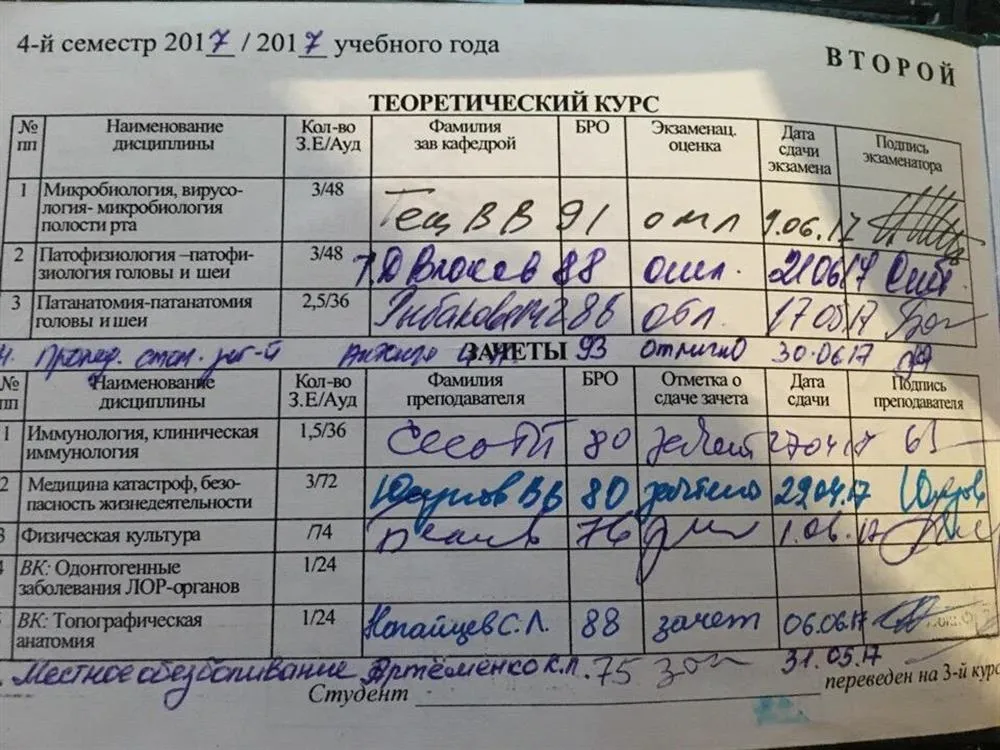 4-й семестр 2017 / 2017 учебного года
ВТОРОЙ
ТЕОРЕТИЧЕСКИЙ КУРС
№ пп Наименование дисциплины Кол-во З.Е/Ауд Фамилия зав кафедрой БРО Экзаменац. оценка Дата сдачи экзамена Подпись экзаменатора
1 Микробиология, вирусо-
логия- микробиология
полости рта 3/48 Тец В В 91 отл 9.06.17
2 Патофизиология –патофи-
зиология головы и шеи 3/48 Т.Д Власов 88 отл. 210617
3 Патанатомия-патанатомия
головы и шеи 2,5/36 86 17 17
4. Пропед. стом. заб-й 93 отлично 30.06.17
ЗАЧЕТЫ
№ пп Наименование дисциплины Кол-во З.Е/Ауд Фамилия преподавателя БРО Отметка о сдаче зачета Дата сдачи Подпись преподавателя
1 Иммунология, клиническая
иммунология 1,5/36 80 зачет 270417
2 Медицина катастроф, безо-
пасность жизнедеятельности 3/72 80 зачтено 29.04.17
3 Физическая культура /74 76 1.06.17
4 ВК: Одонтогенные
заболевания ЛОР-органов 1/24
5 ВК: Топографическая
анатомия 1/24 Ногайцев С.Л. 88 зачет 06.06.17
Местное обезболивание Артёменко К.Л. 75 31.05.17
Студент переведен на 3-й курс